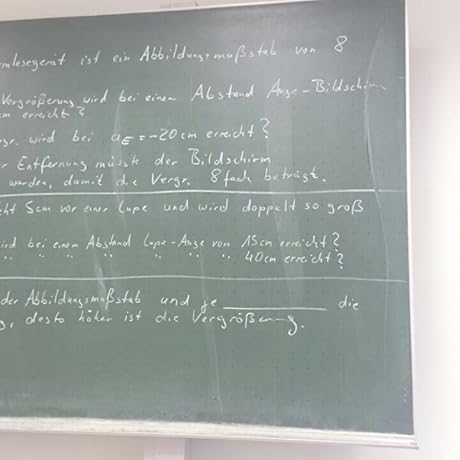 mlesegerät ist ein Abbildungsmaßstab von 8
Vergrößerung wird bei einem Abstand Auge-Bildschirm
cm erreicht?
gr. wird bei a_E = -20cm erreicht?
r Entfernung müsste der Bildschirm
werden, damit die Vergr. 8fach beträgt.
ht 5cm vor einer Lupe und wird doppelt so groß
ird bei einem Abstand Lupe-Auge von 15cm erreicht?
" " " " " " 40cm erreicht?
der Abbildungsmaßstab und je __________ die
g, desto höher ist die Vergrößerung.